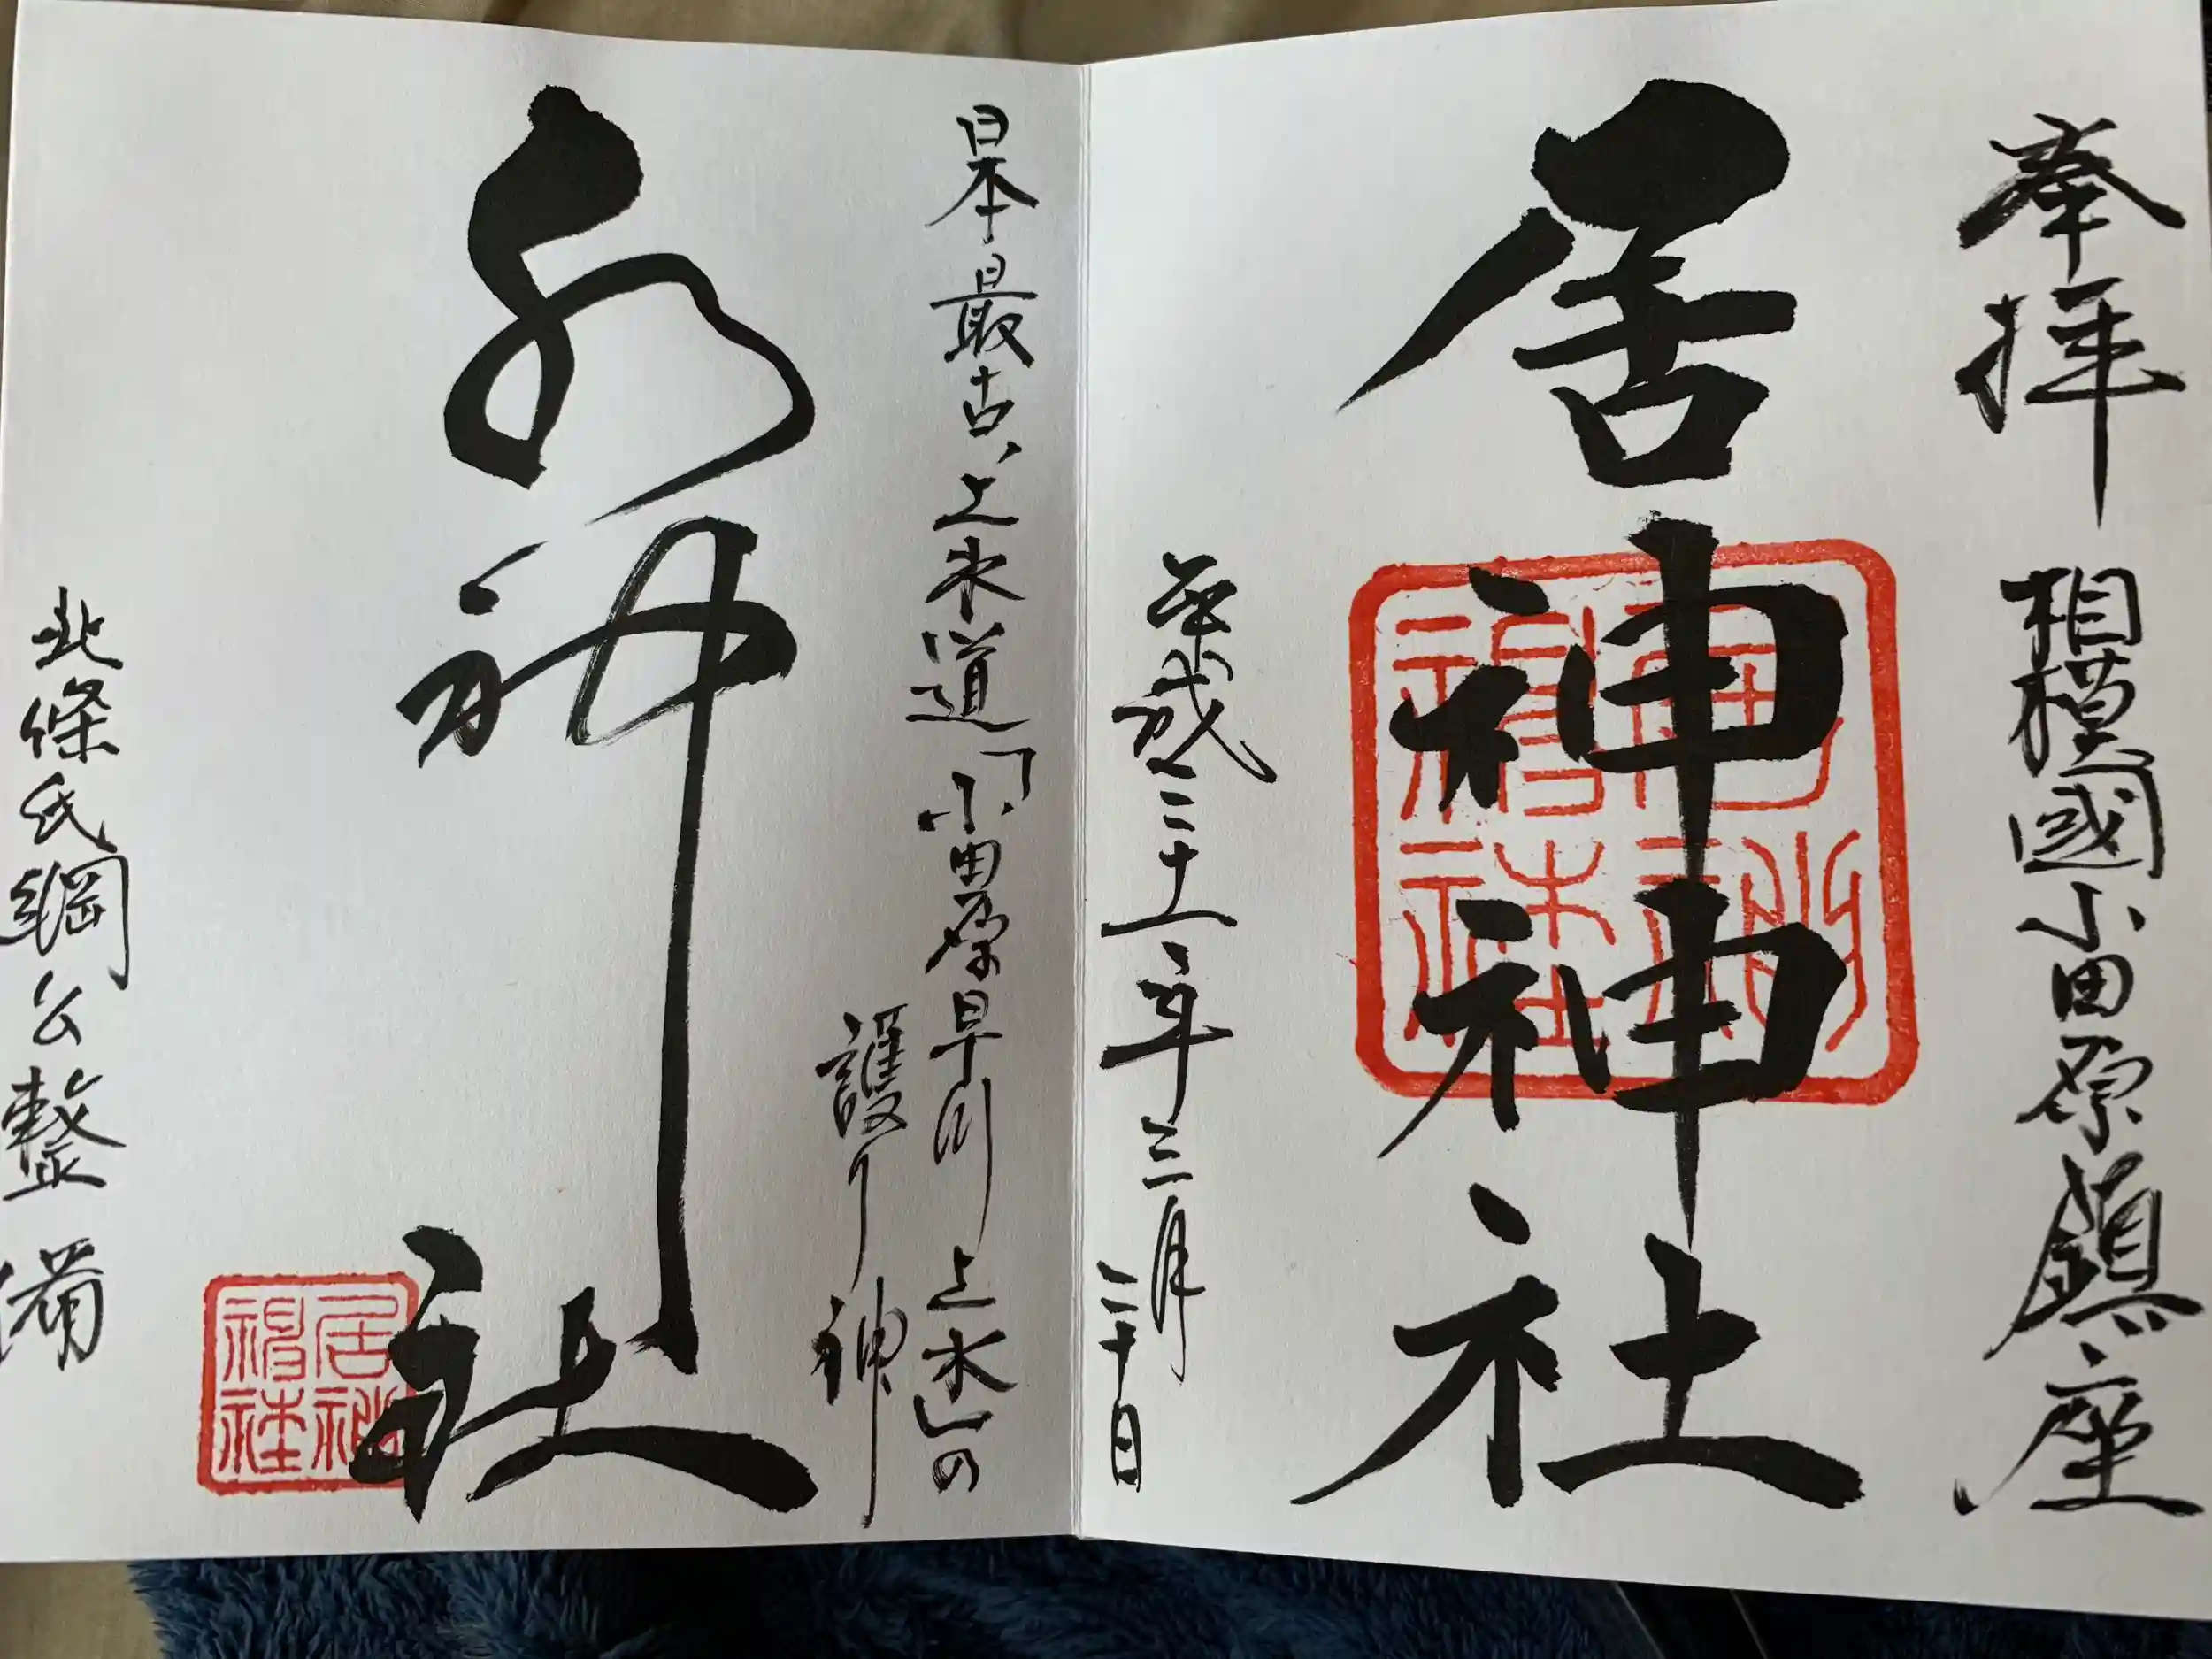 奉拝 相模國小田原鎮座
居神神社
平成三十一年三月二十日
日本最古、上水道「小田原早川上水」の
護り神
水神社
居神
神社
北條氏綱公整備